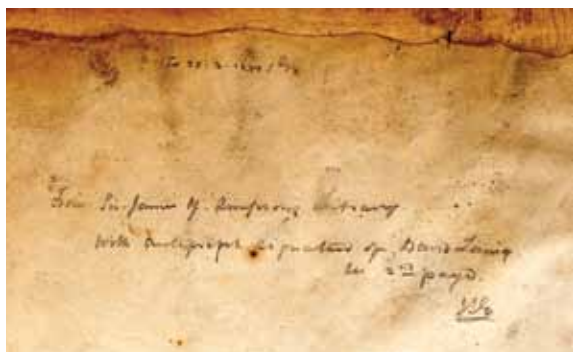 From Sir James Y. Simpson's Library
With autograph signature of David Laing
on 2nd page.